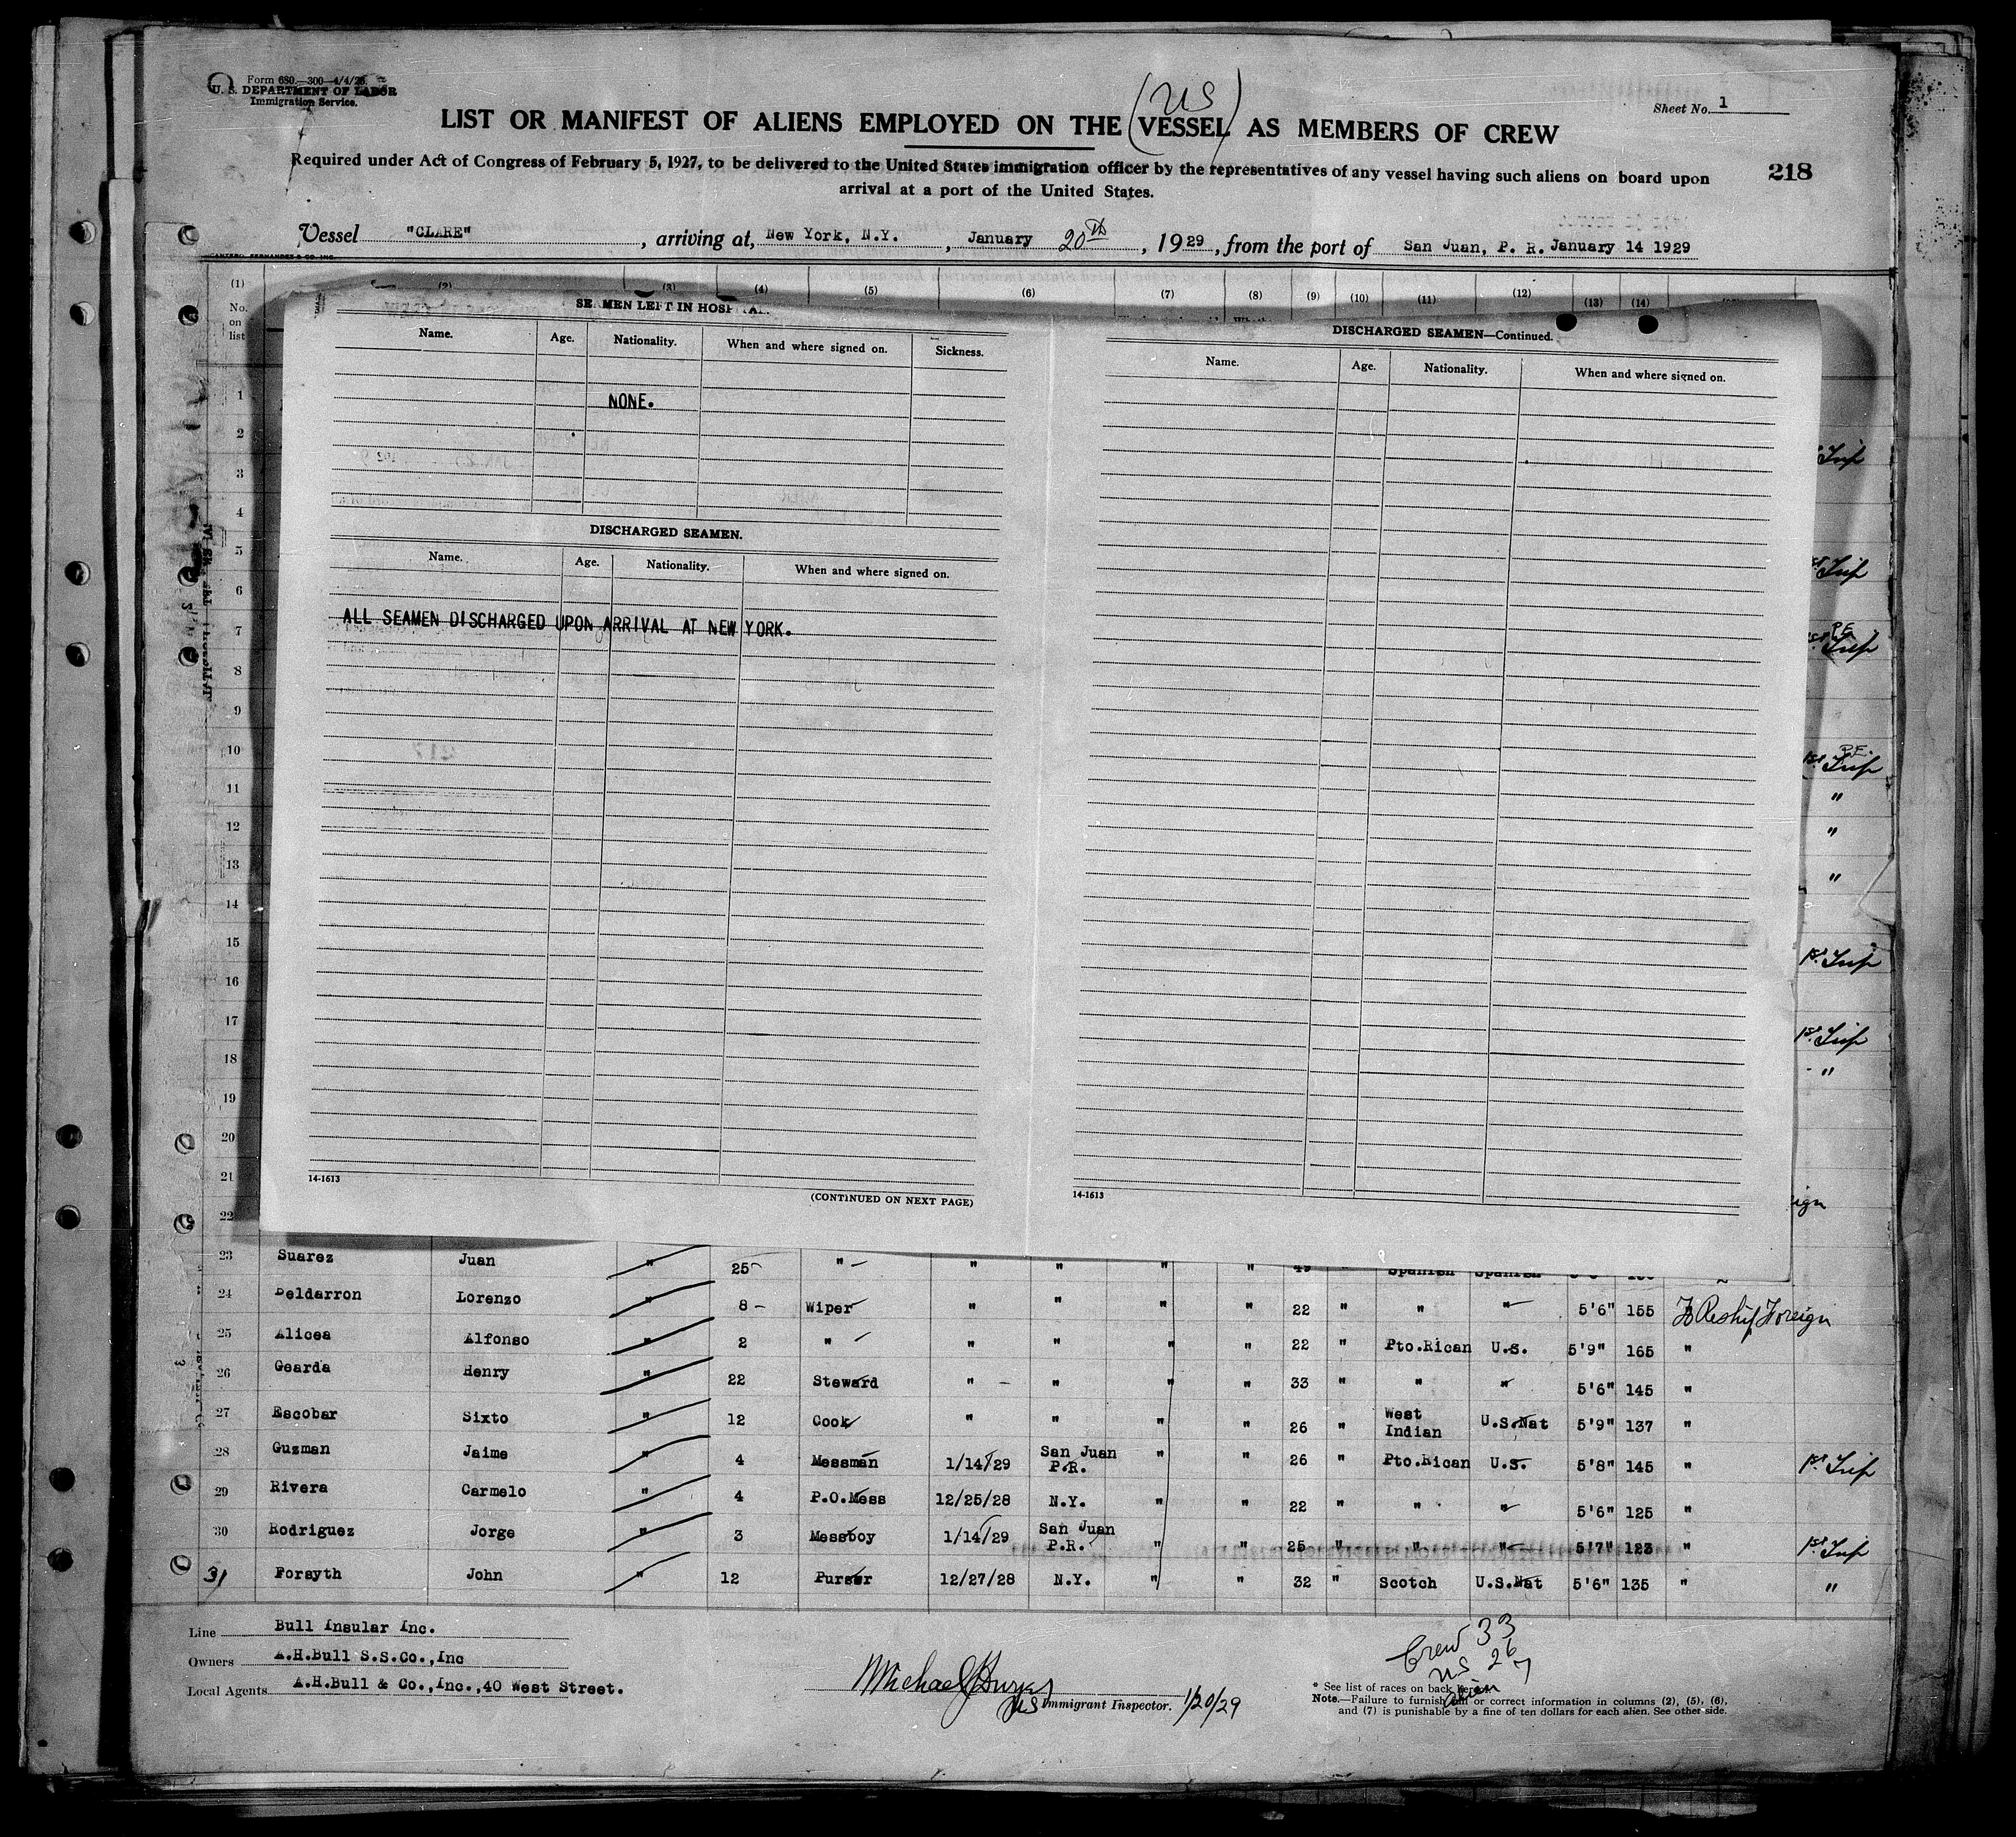 Form 680.—300—4/4/28.
U. S. DEPARTMENT OF LABOR
Immigration Service.
(US)
Sheet No. 1
LIST OR MANIFEST OF ALIENS EMPLOYED ON THE VESSEL AS MEMBERS OF CREW
Required under Act of Congress of February 5, 1927, to be delivered to the United States immigration officer by the representatives of any vessel having such aliens on board upon
arrival at a port of the United States.
218
Vessel "CLARE", arriving at, New York, N.Y., January 20th, 1929, from the port of San Juan, P. R. January 14 1929
(1) (3) (4) (5) (6) (7) (8) (9) (10) (11) (12) (13) (14)
No.
on
list
SEAMEN LEFT IN HOSPITAL
Name. Age. Nationality. When and where signed on. Sickness.
NONE.
DISCHARGED SEAMEN.
Name. Age. Nationality. When and where signed on.
ALL SEAMEN DISCHARGED UPON ARRIVAL AT NEW YORK.
14-1613
(CONTINUED ON NEXT PAGE)
DISCHARGED SEAMEN—Continued.
Name. Age. Nationality. When and where signed on.
14-1613
1
2
3
4
5
6
7
8
9
10
11
12
13
14
15
16
17
18
19
20
21
22
23 Suarez Juan " 25 " " " " " 49 " Spanish Spanish
24 Deldarron Lorenzo " 8 Wiper " " " " 22 " " " 5'6" 155 To Reship Foreign
25 Alicea Alfonso " 2 " " " " " 22 " Pto.Rican U.S. 5'9" 165 "
26 Gearda Henry " 22 Steward " " " " 33 " " " 5'6" 145 "
27 Escobar Sixto " 12 Cook " " " " 26 " West Indian U.S.Nat 5'9" 137 "
28 Guzman Jaime " 4 Messman 1/14/29 San Juan P.R. " " 26 " Pto.Rican U.S. 5'8" 145 " 1st Trip
29 Rivera Carmelo " 4 P.O.Mess 12/25/28 N.Y. " " 22 " " " 5'6" 125 "
30 Rodriguez Jorge " 3 Messboy 1/14/29 San Juan P.R. " " 25 " " " 5'7" 123 " 1st Trip
31 Forsyth John " 12 Purser 12/27/28 N.Y. " " 32 " Scotch U.S.Nat 5'6" 135 " "
Line Bull Insular Inc.
Owners A.H.Bull S.S.Co.,Inc
Local Agents A.H.Bull & Co.,Inc.,40 West Street.
Michael
US Immigrant Inspector. 1/20/29
Crew 33
US 26
alien 7
* See list of races on back hereof.
Note.—Failure to furnish full or correct information in columns (2), (5), (6),
and (7) is punishable by a fine of ten dollars for each alien. See other side.